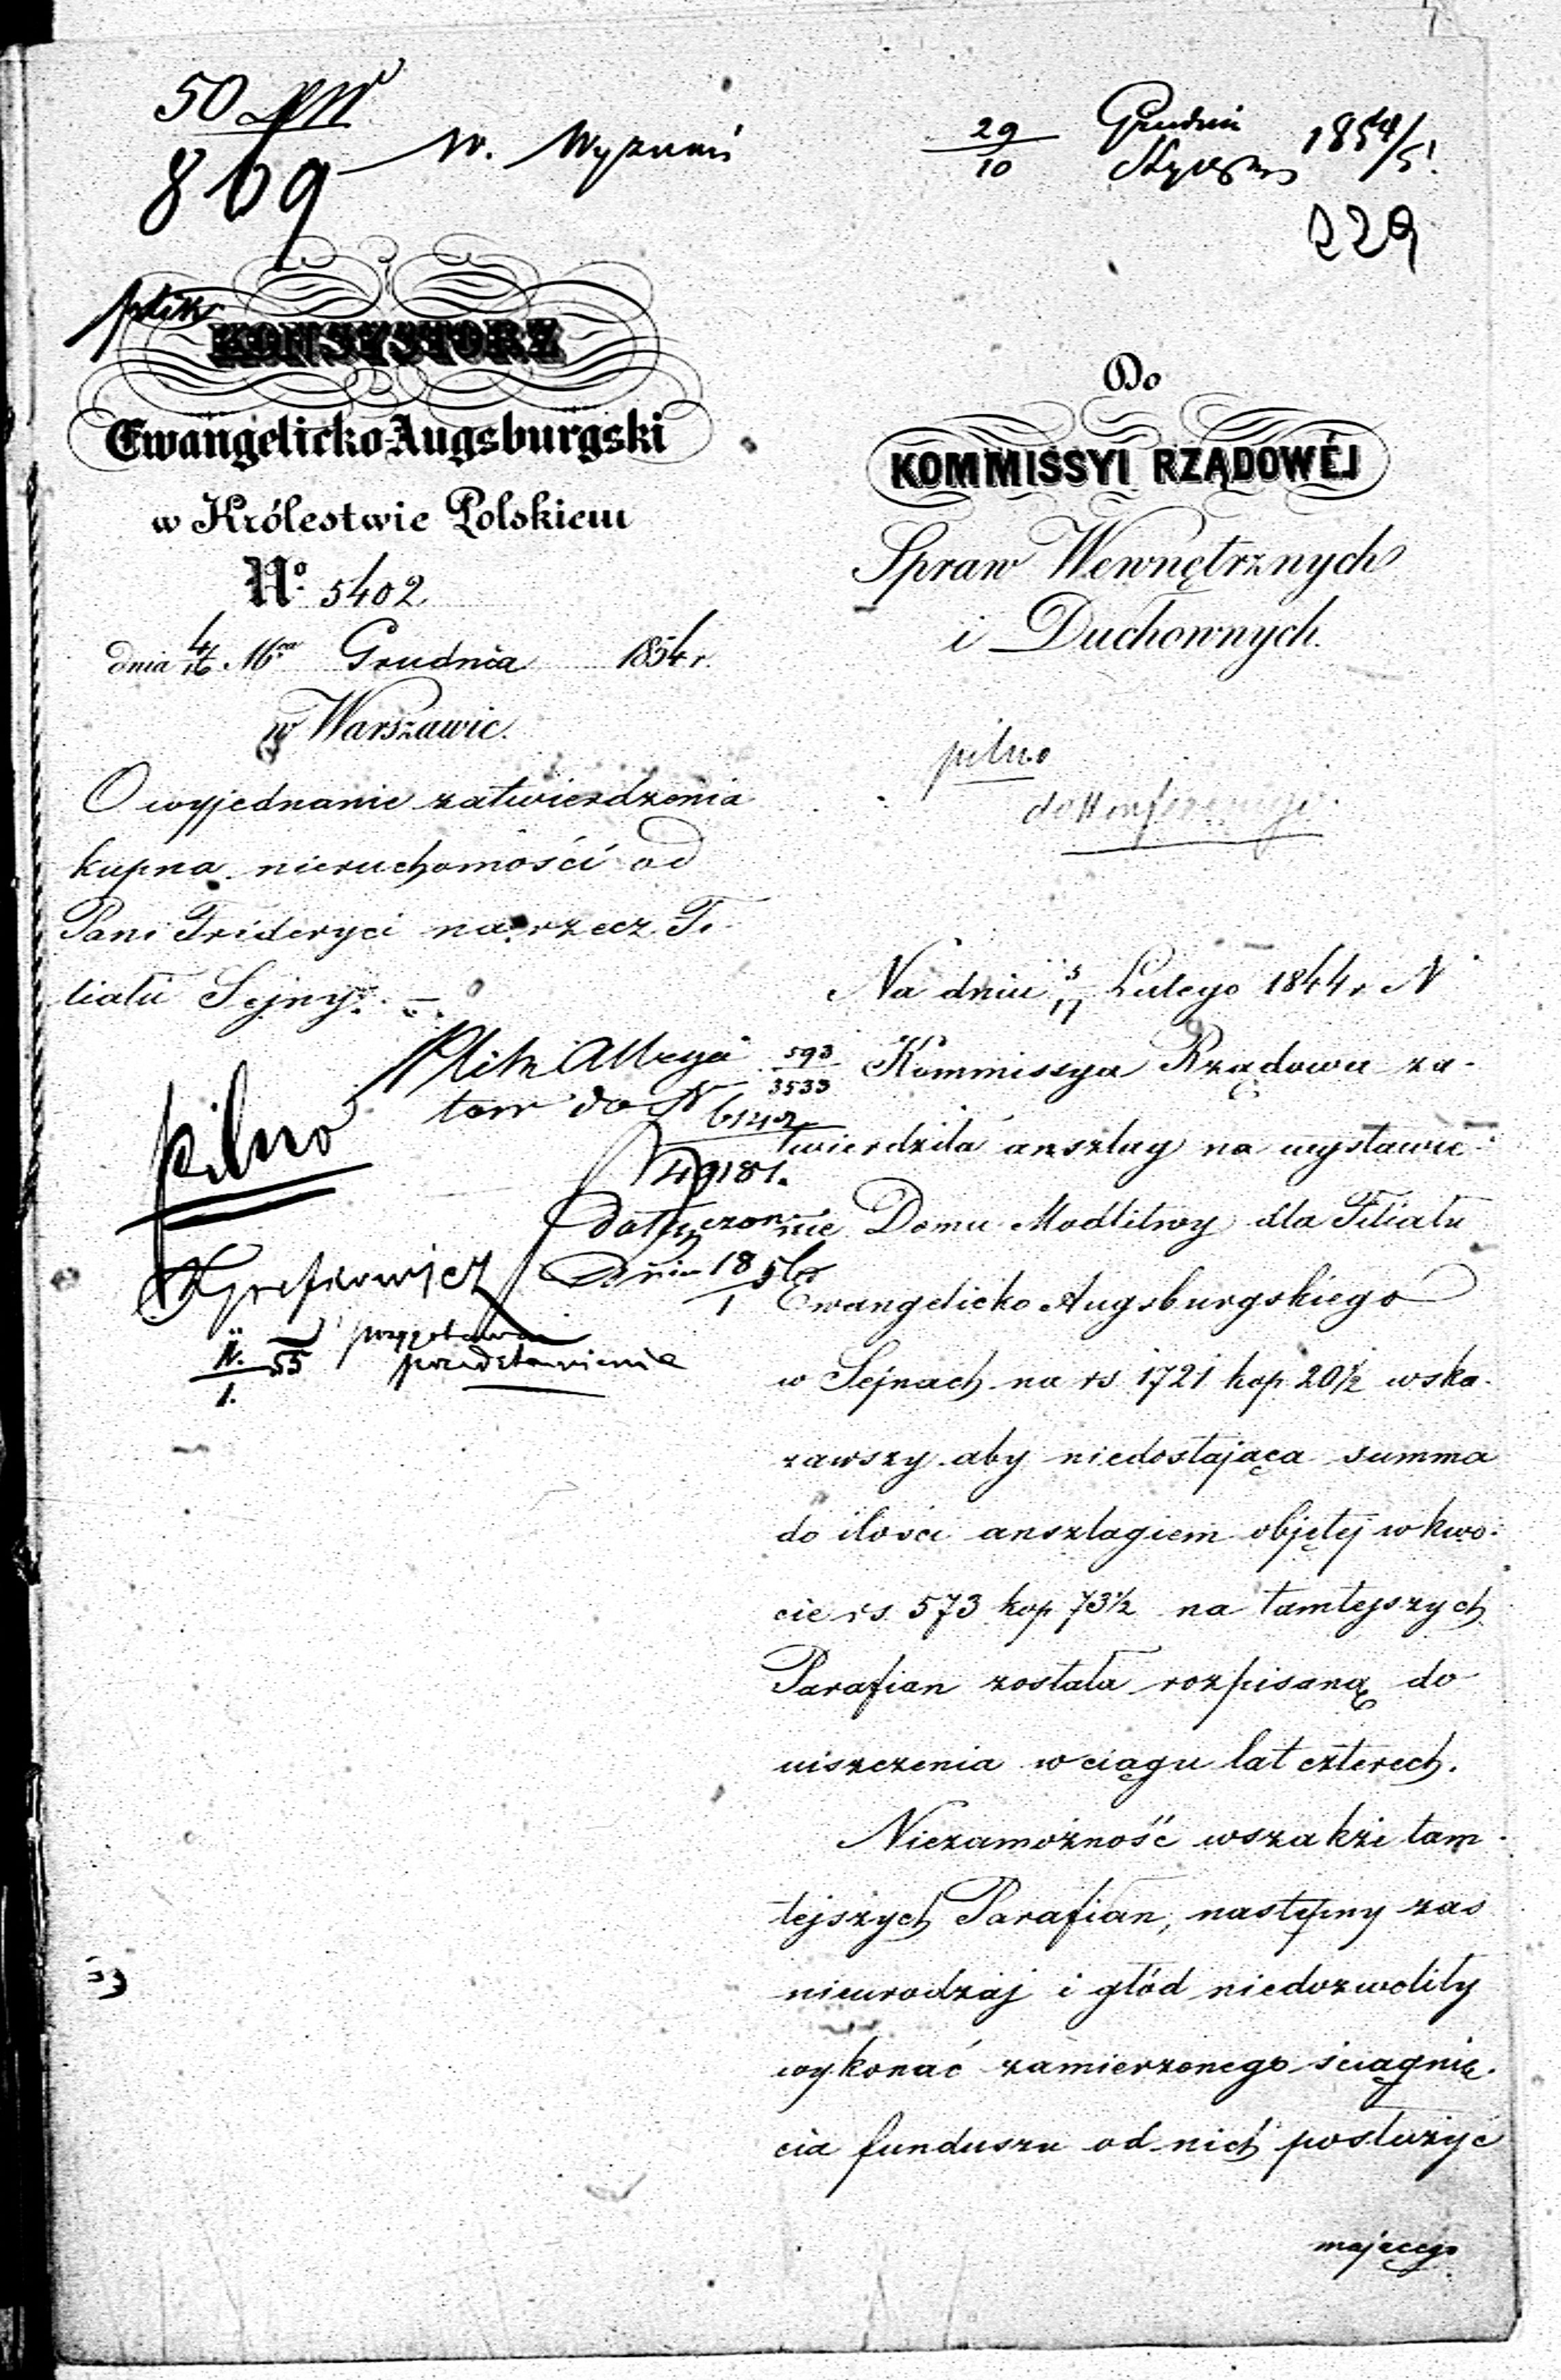 50
869
W. Wyznań
29 Grudnia 1854/5.
10 Stycznia
229
KONSYSTORZ
Ewangelicko-Augsburgski
w Królestwie Polskiem
No. 5402
dnia 4/16 Mca Grudnia 1854 r.
w Warszawie.
O wyjednanie zatwierdzenia
kupna nieruchomości od
Pani Frideryci na rzecz Fi-
liału Sejny.
pilno
55
przedstawienie
49181.
Do
KOMMISSYI RZĄDOWÉJ
Spraw Wewnętrznych
i Duchownych.
pilno
do Konferencyi
Na dniu 5/17 Lutego 1844 r. N
593/3533 Kommissya Rządowa za-
twierdziła anszlag na wystawie-
nie Domu Modlitwy dla Filiału
Ewangelicko Augsburgskiego
w Sejnach na rs 1721 kop 20½ wska-
zawszy aby niedostająca summa
do ilości anszlagiem objętej w kwo-
cie rs. 573 kop 73½ na tamtejszych
Parafian została rozpisaną do
uiszczenia w ciągu lat czterech.
Niezamożność wszakże tam-
tejszych Parafian, następny zaś
nieurodzaj i głód niedozwoliły
wykonać zamierzonego ściągnię-
cia funduszu od nich posłużyć
mającego